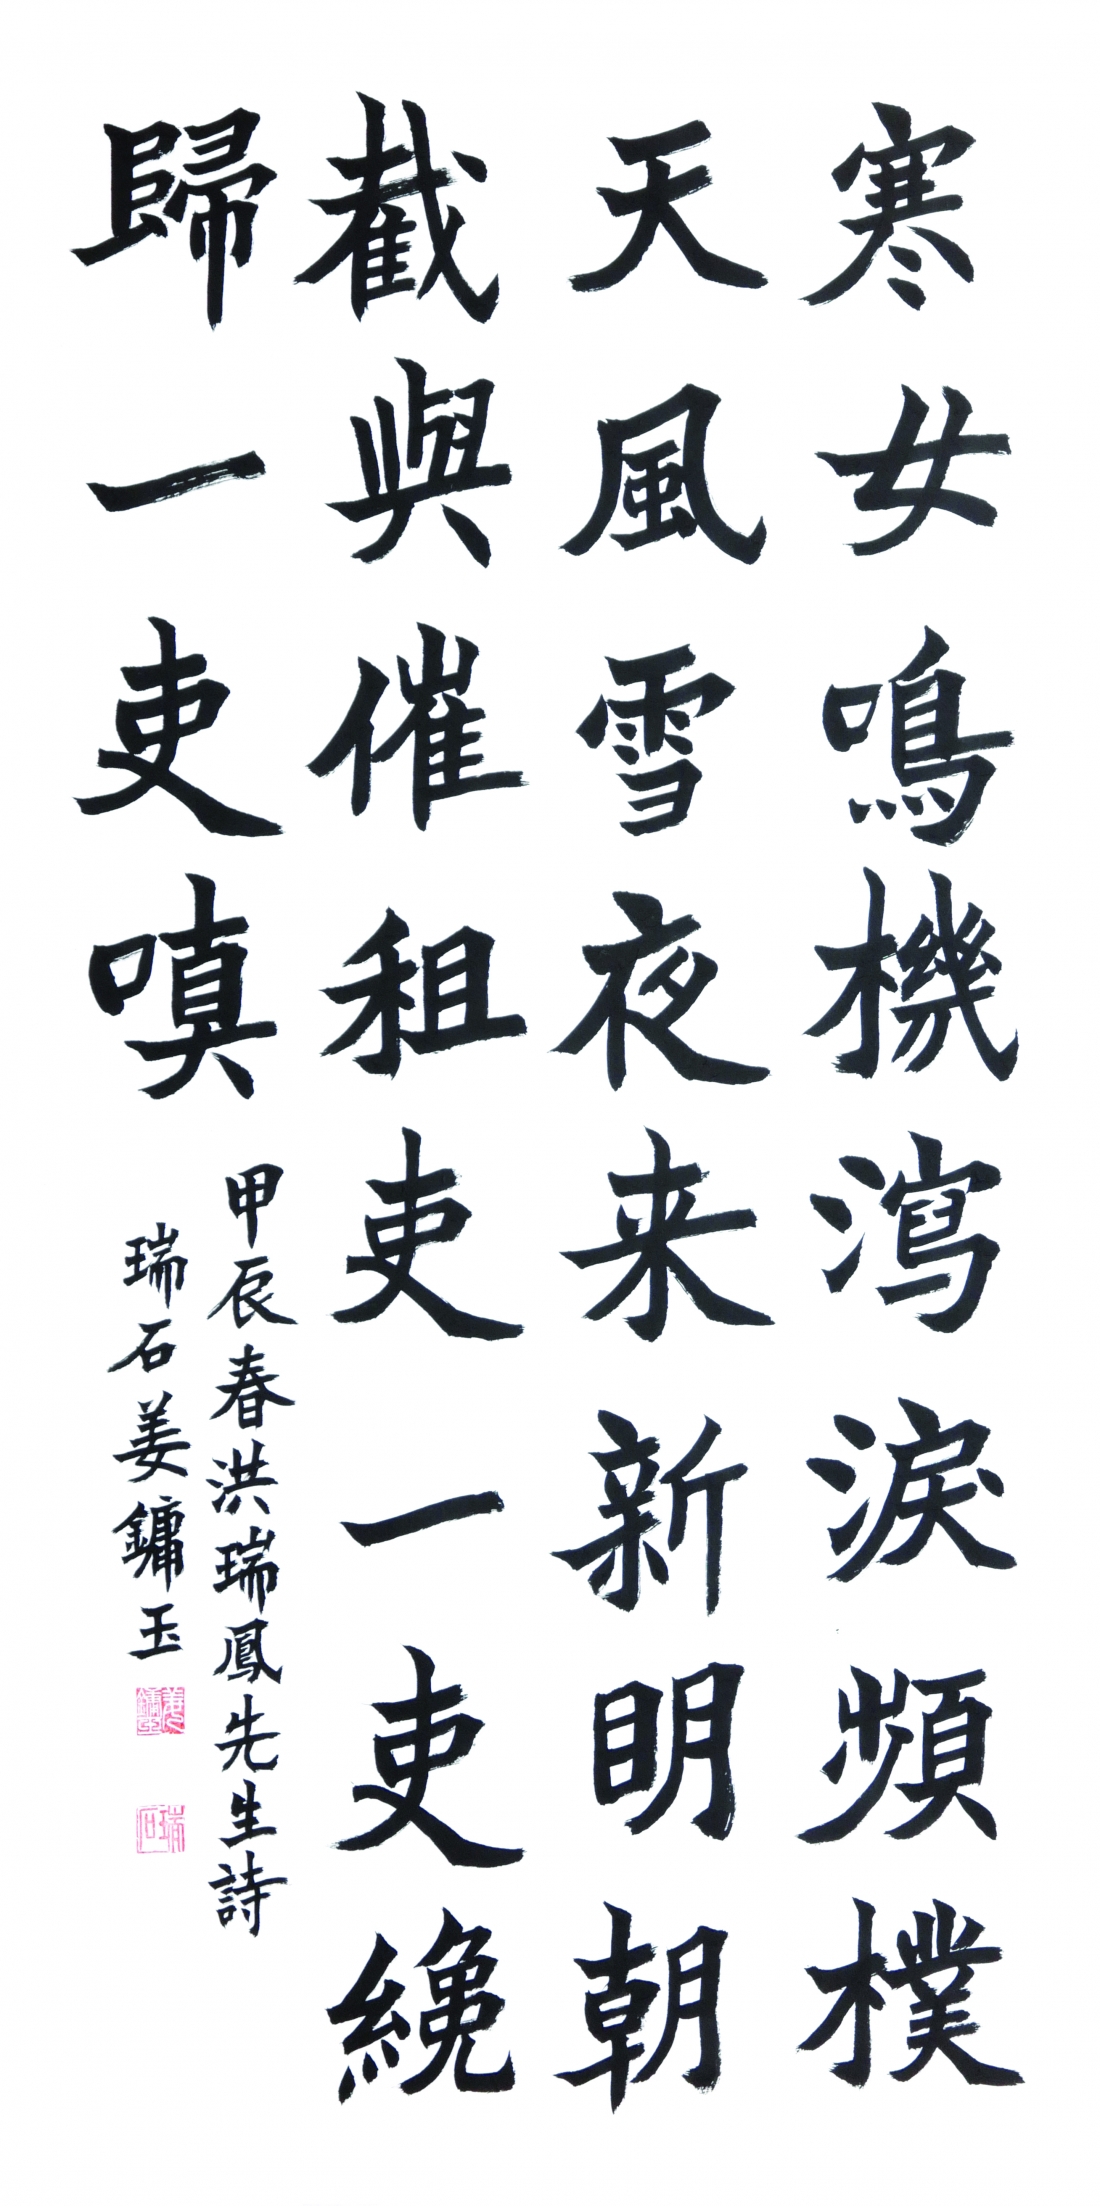 寒女鳴機瀉淚頻樸
天風雪夜来新明朝
截與催租吏一吏纔
歸一吏嗔
甲辰春洪瑞鳳先生詩
瑞石姜鏞玉
瑞石